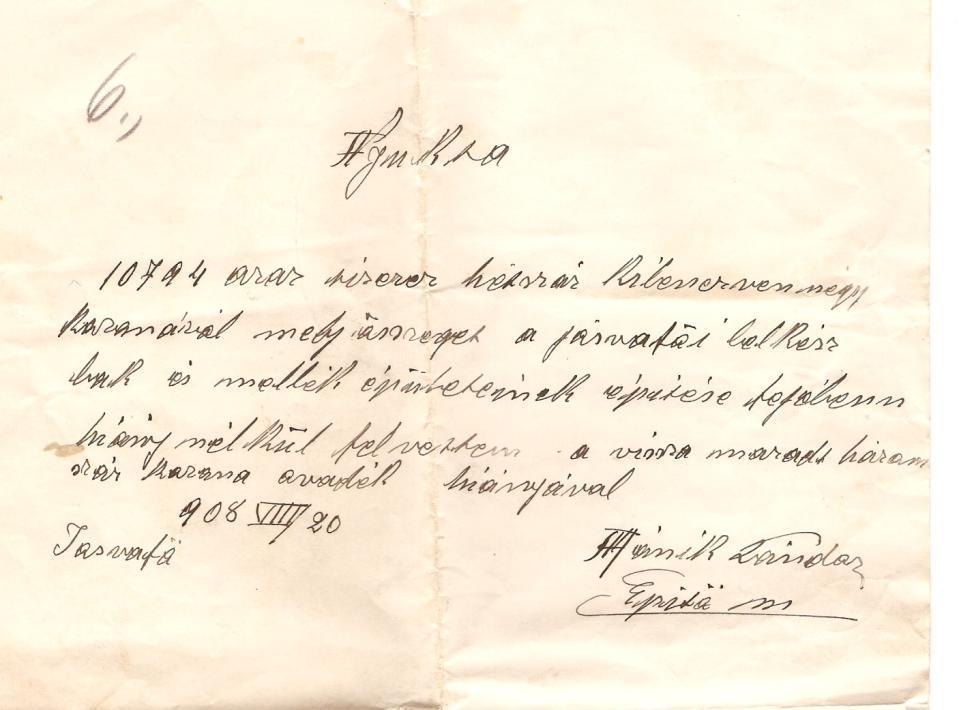 6.,
Nyukta
10794 azaz tizezer hétszáz kilenczvennégy
koronáról mely összeget a jósvafői lelkész
lak és mellék épületeinek építése fejébenn
hiány nélkül felvettem a vissza maradt három
száz korona ovadék hiányjával
908 VIII/20
Josvafő
Sándor
Építő m